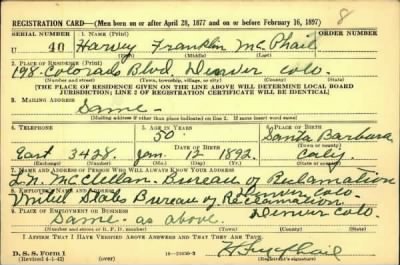 REGISTRATION CARD—(Men born on or after April 28, 1877 and on or before February 16, 1897) 8
SERIAL NUMBER 1. NAME (Print) ORDER NUMBER
U 40 Harvey Franklin McPhail
(First) (Middle) (Last)
2. PLACE OF RESIDENCE (Print)
198 Colorado Blvd Denver Colo.
(Number and street) (Town, township, village, or city) (County) (State)
[THE PLACE OF RESIDENCE GIVEN ON THE LINE ABOVE WILL DETERMINE LOCAL BOARD
JURISDICTION; LINE 2 OF REGISTRATION CERTIFICATE WILL BE IDENTICAL]
3. MAILING ADDRESS
Same -
[Mailing address if other than place indicated on line 2. If same insert word same]
4. TELEPHONE 5. AGE IN YEARS 6. PLACE OF BIRTH
50 Santa Barbara
DATE OF BIRTH
East 3428 Jan. 12 1892. Calif
(Exchange) (Number) (Mo.) (Day) (Yr.) (State or country)
7. NAME AND ADDRESS OF PERSON WHO WILL ALWAYS KNOW YOUR ADDRESS
L.N. McClellan. Bureau of Reclamation
Denver Colo.
8. EMPLOYER'S NAME AND ADDRESS
United States Bureau of Reclamation
Denver Colo
9. PLACE OF EMPLOYMENT OR BUSINESS
Same as above.
(Number and street or R. F. D. number) (Town) (County) (State)
I AFFIRM THAT I HAVE VERIFIED ABOVE ANSWERS AND THAT THEY ARE TRUE.
D. S. S. Form 1
(Revised 4-1-42) (over) 16—21630-2
H F McPhail
(Registrant's signature)